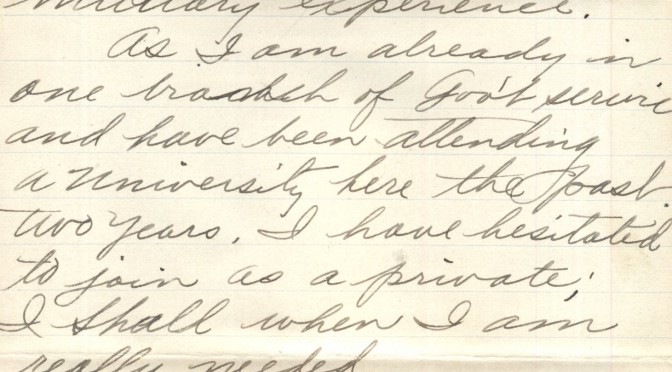 military experience.
As I am already in
one branch of Gov't servic
and have been attending
a University here the past
two years. I have hesitated
to join as a private;
I shall when I am
really needed